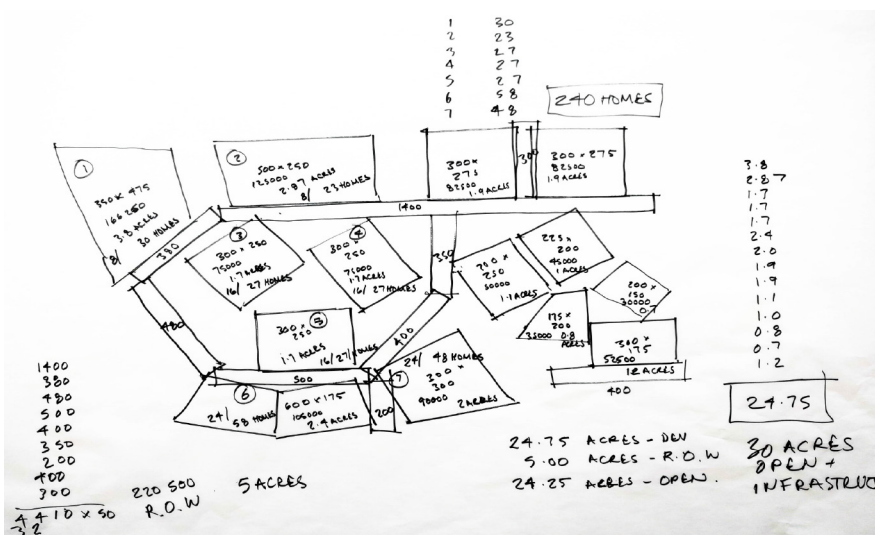 1 30
2 23
3 27
4 27
5 27
6 58
7 48
240 HOMES
1
350 x 475
166250
3.8 ACRES
8/ 30 HOMES
380
2
500 x 250
125000
2.87 ACRES
8/ 23 HOMES
300 x
275
82500
1.9 ACRES
300
300 x 275
82500
1.9 ACRES
1400
3
300 x 250
75000
1.7 ACRES
16/ 27 HOMES
4
300 x
250
75000
1.7 ACRES
16/ 27 HOMES
350
200 x
250
50000
1.1 ACRES
225 x
200
45000
1 ACRES
200 x
150
30000
0.7
175 x
200
35000 0.8
ACRES
300 x
175
52500
1.2 ACRES
400
480
5
300 x
250
1.7 ACRES
16/27/HOMES
400
500
6
24/
58 HOMES
600 x 175
105000
2.4 ACRES
200
7
24/ 48 HOMES
300 x
300
90000 2 ACRES
3.8
2.87
1.7
1.7
1.7
2.4
2.0
1.9
1.9
1.1
1.0
0.8
0.7
1.2
24.75
1400
380
480
500
400
350
200
400
300
4410 x 50
220 500 5 ACRES
R.O.W
24.75 ACRES - DEV
5.00 ACRES - R.O.W
24.25 ACRES - OPEN.
30 ACRES
OPEN +
INFRASTRUC